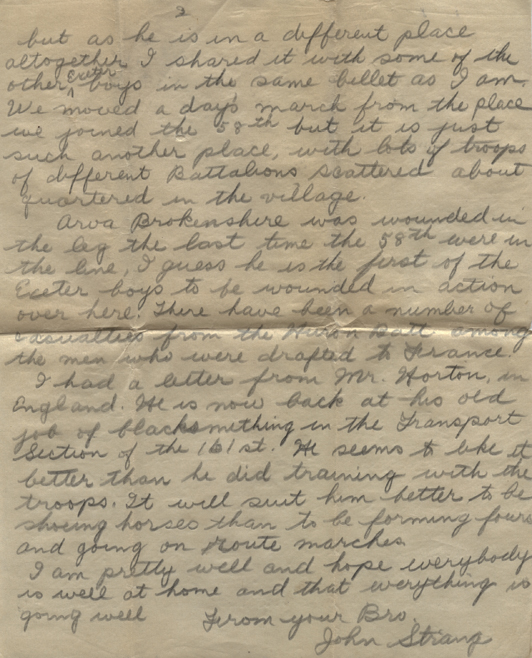 2
but as he is in a different place
altogether I shared it with some of the
other Exeter boys in the same billet as I am.
We moved a days march from the place
we joined the 58th but it is just
such another place, with lots of troops
of different Battalions scattered about
quartered in the village.
Arva Brokenshire was wounded in
the leg the last time the 58th were in
the line, I guess he is the first of the
Exeter boys to be wounded in action
over here. There have been a number of
casualties from the Huron Batt among
the men who were drafted to France.
I had a letter from Mr. Horton, in
England. He is now back at his old
job of blacksmithing in the Transport
Section of the 161st. He seems to like it
better than he did training with the
troops. It will suit him better to be
shoeing horses than to be forming fours
and going on Route marches.
I am pretty well and hope everybody
is well at home and that everything is
going well From your Bro.
John Strang